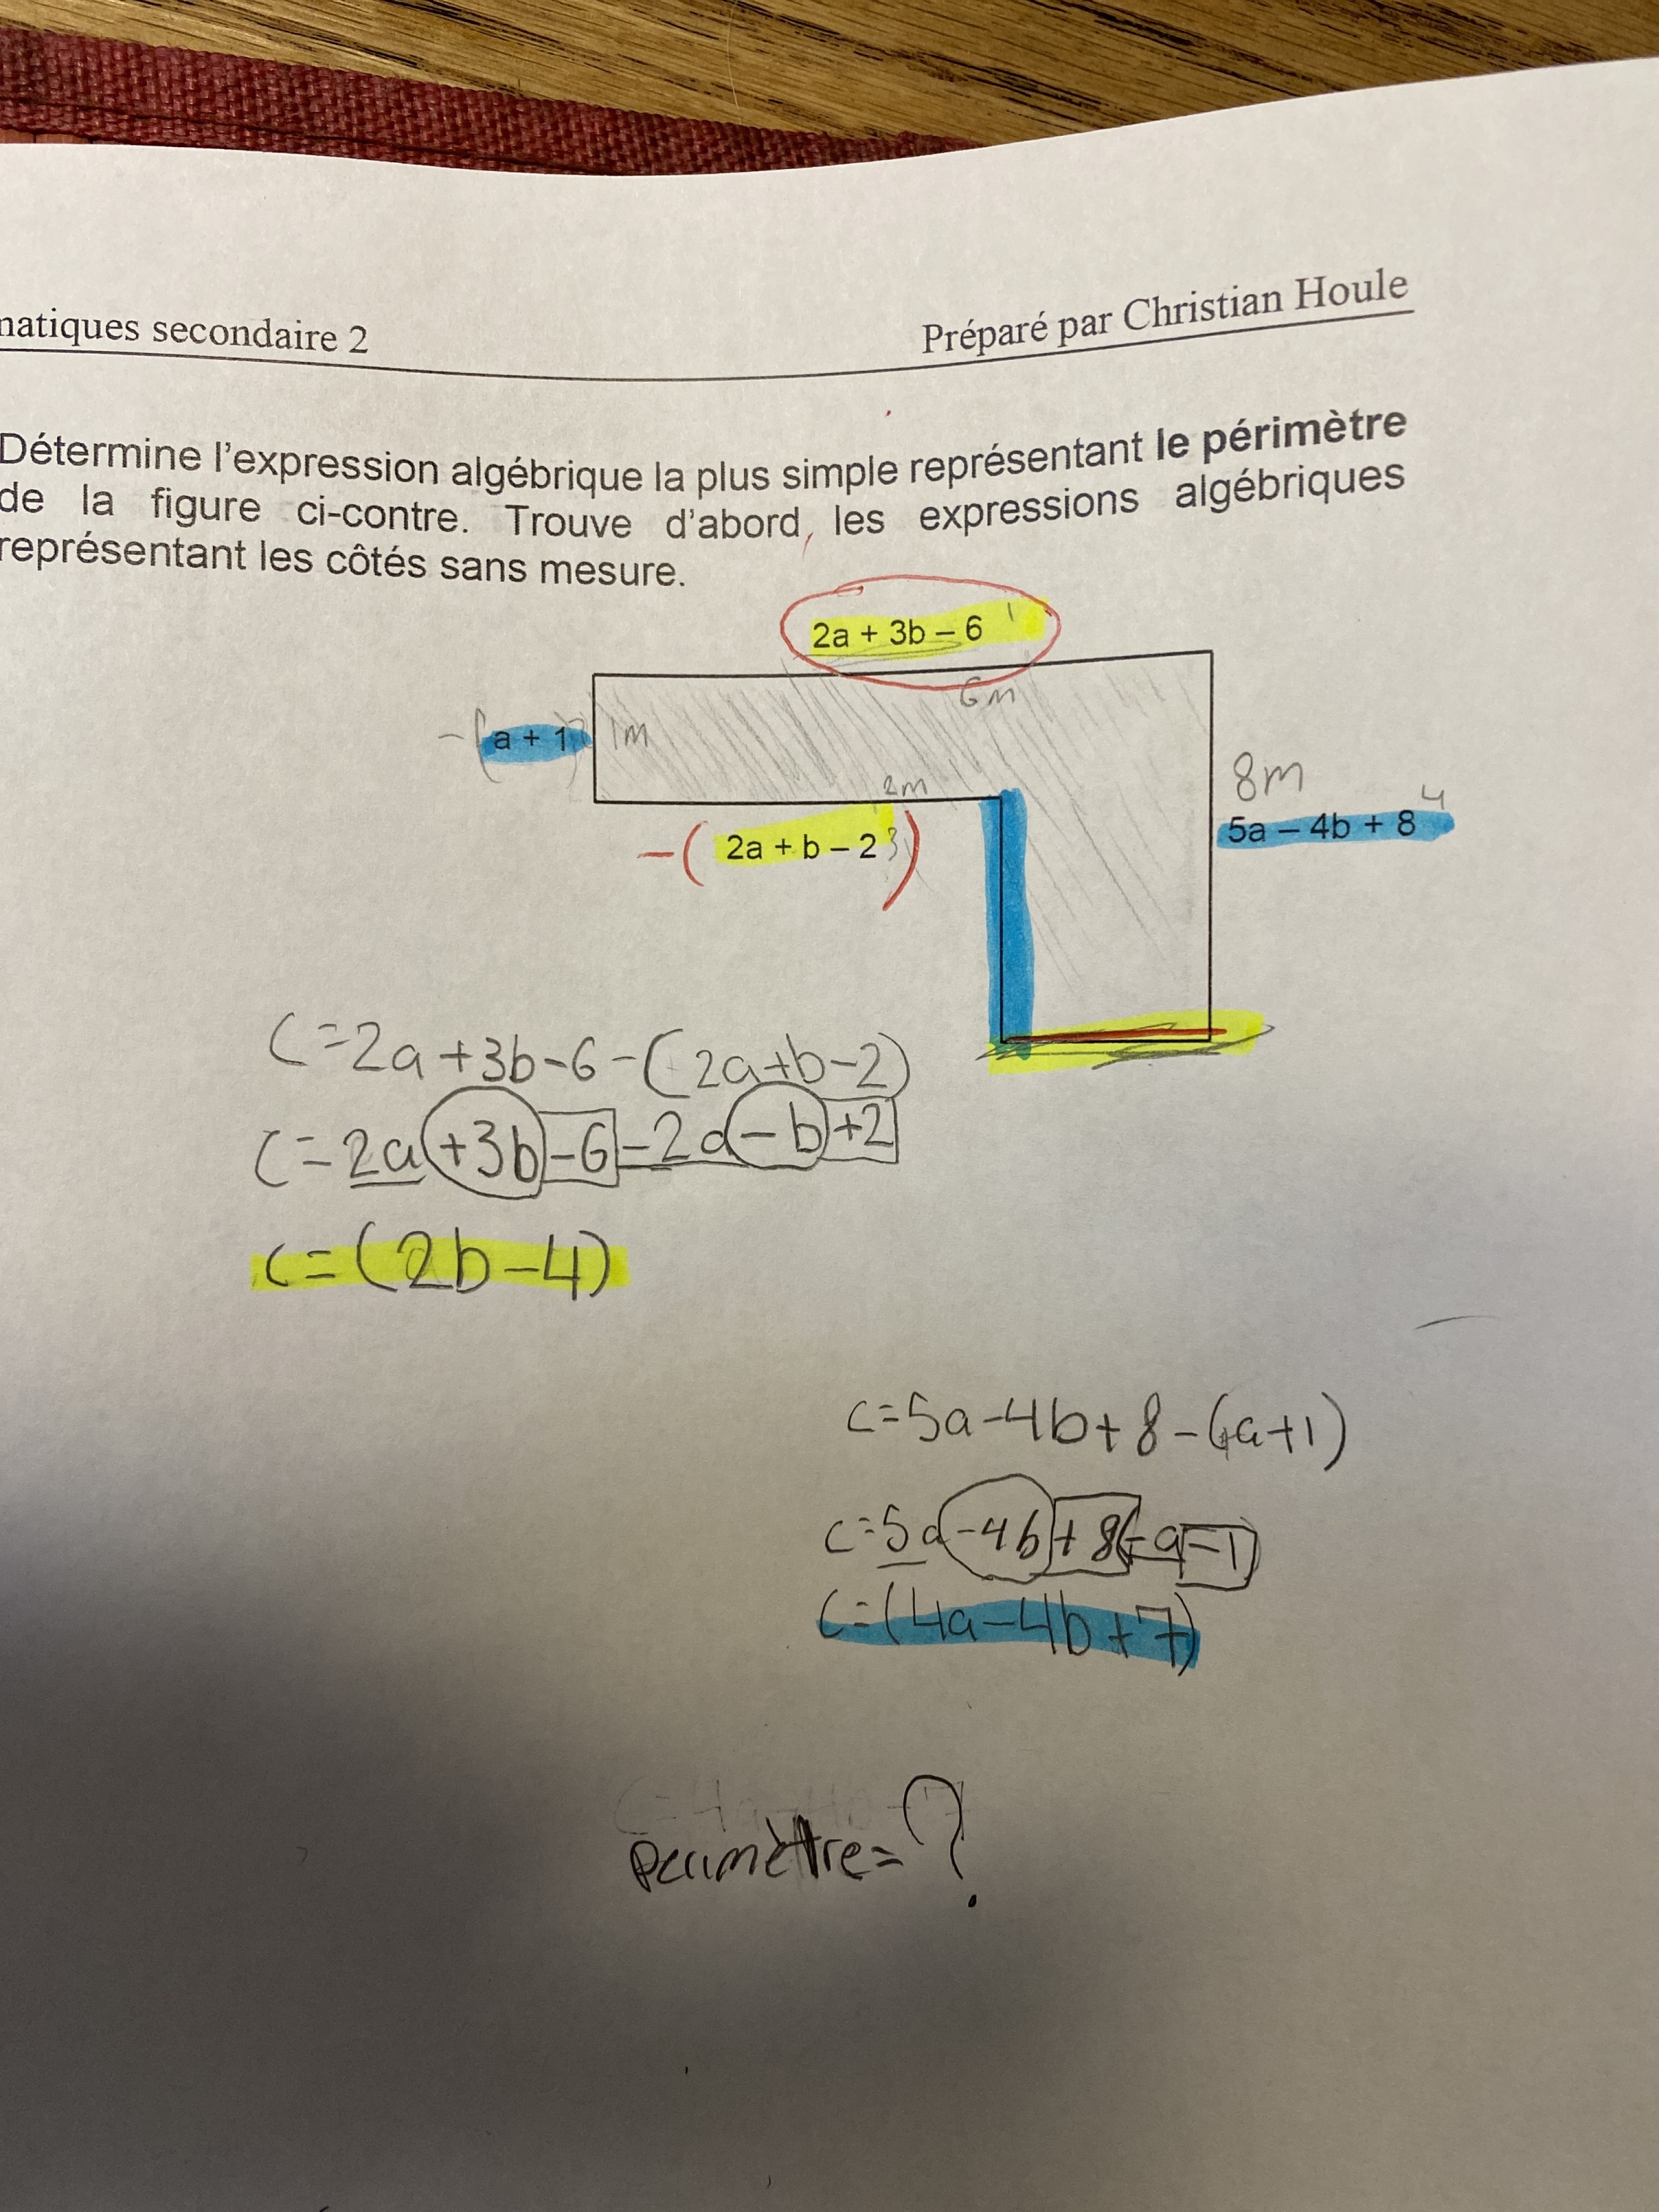 matiques secondaire 2
Préparé par Christian Houle
Détermine l'expression algébrique la plus simple représentant le périmètre
de la figure ci-contre. Trouve d'abord, les expressions algébriques
représentant les côtés sans mesure.
2a + 3b – 6 1
6m
-( a + 1 ) 1m
2m
8m
4
5a – 4b + 8
-( 2a + b – 2 3)
C=2a+3b-6-(2a+b-2)
C=2a+3b-6-2a-b+2
C=(2b-4)
C=5a-4b+8-(a+1)
C=5a-4b+8-a-1
C=(4a-4b+7)
périmètre=?